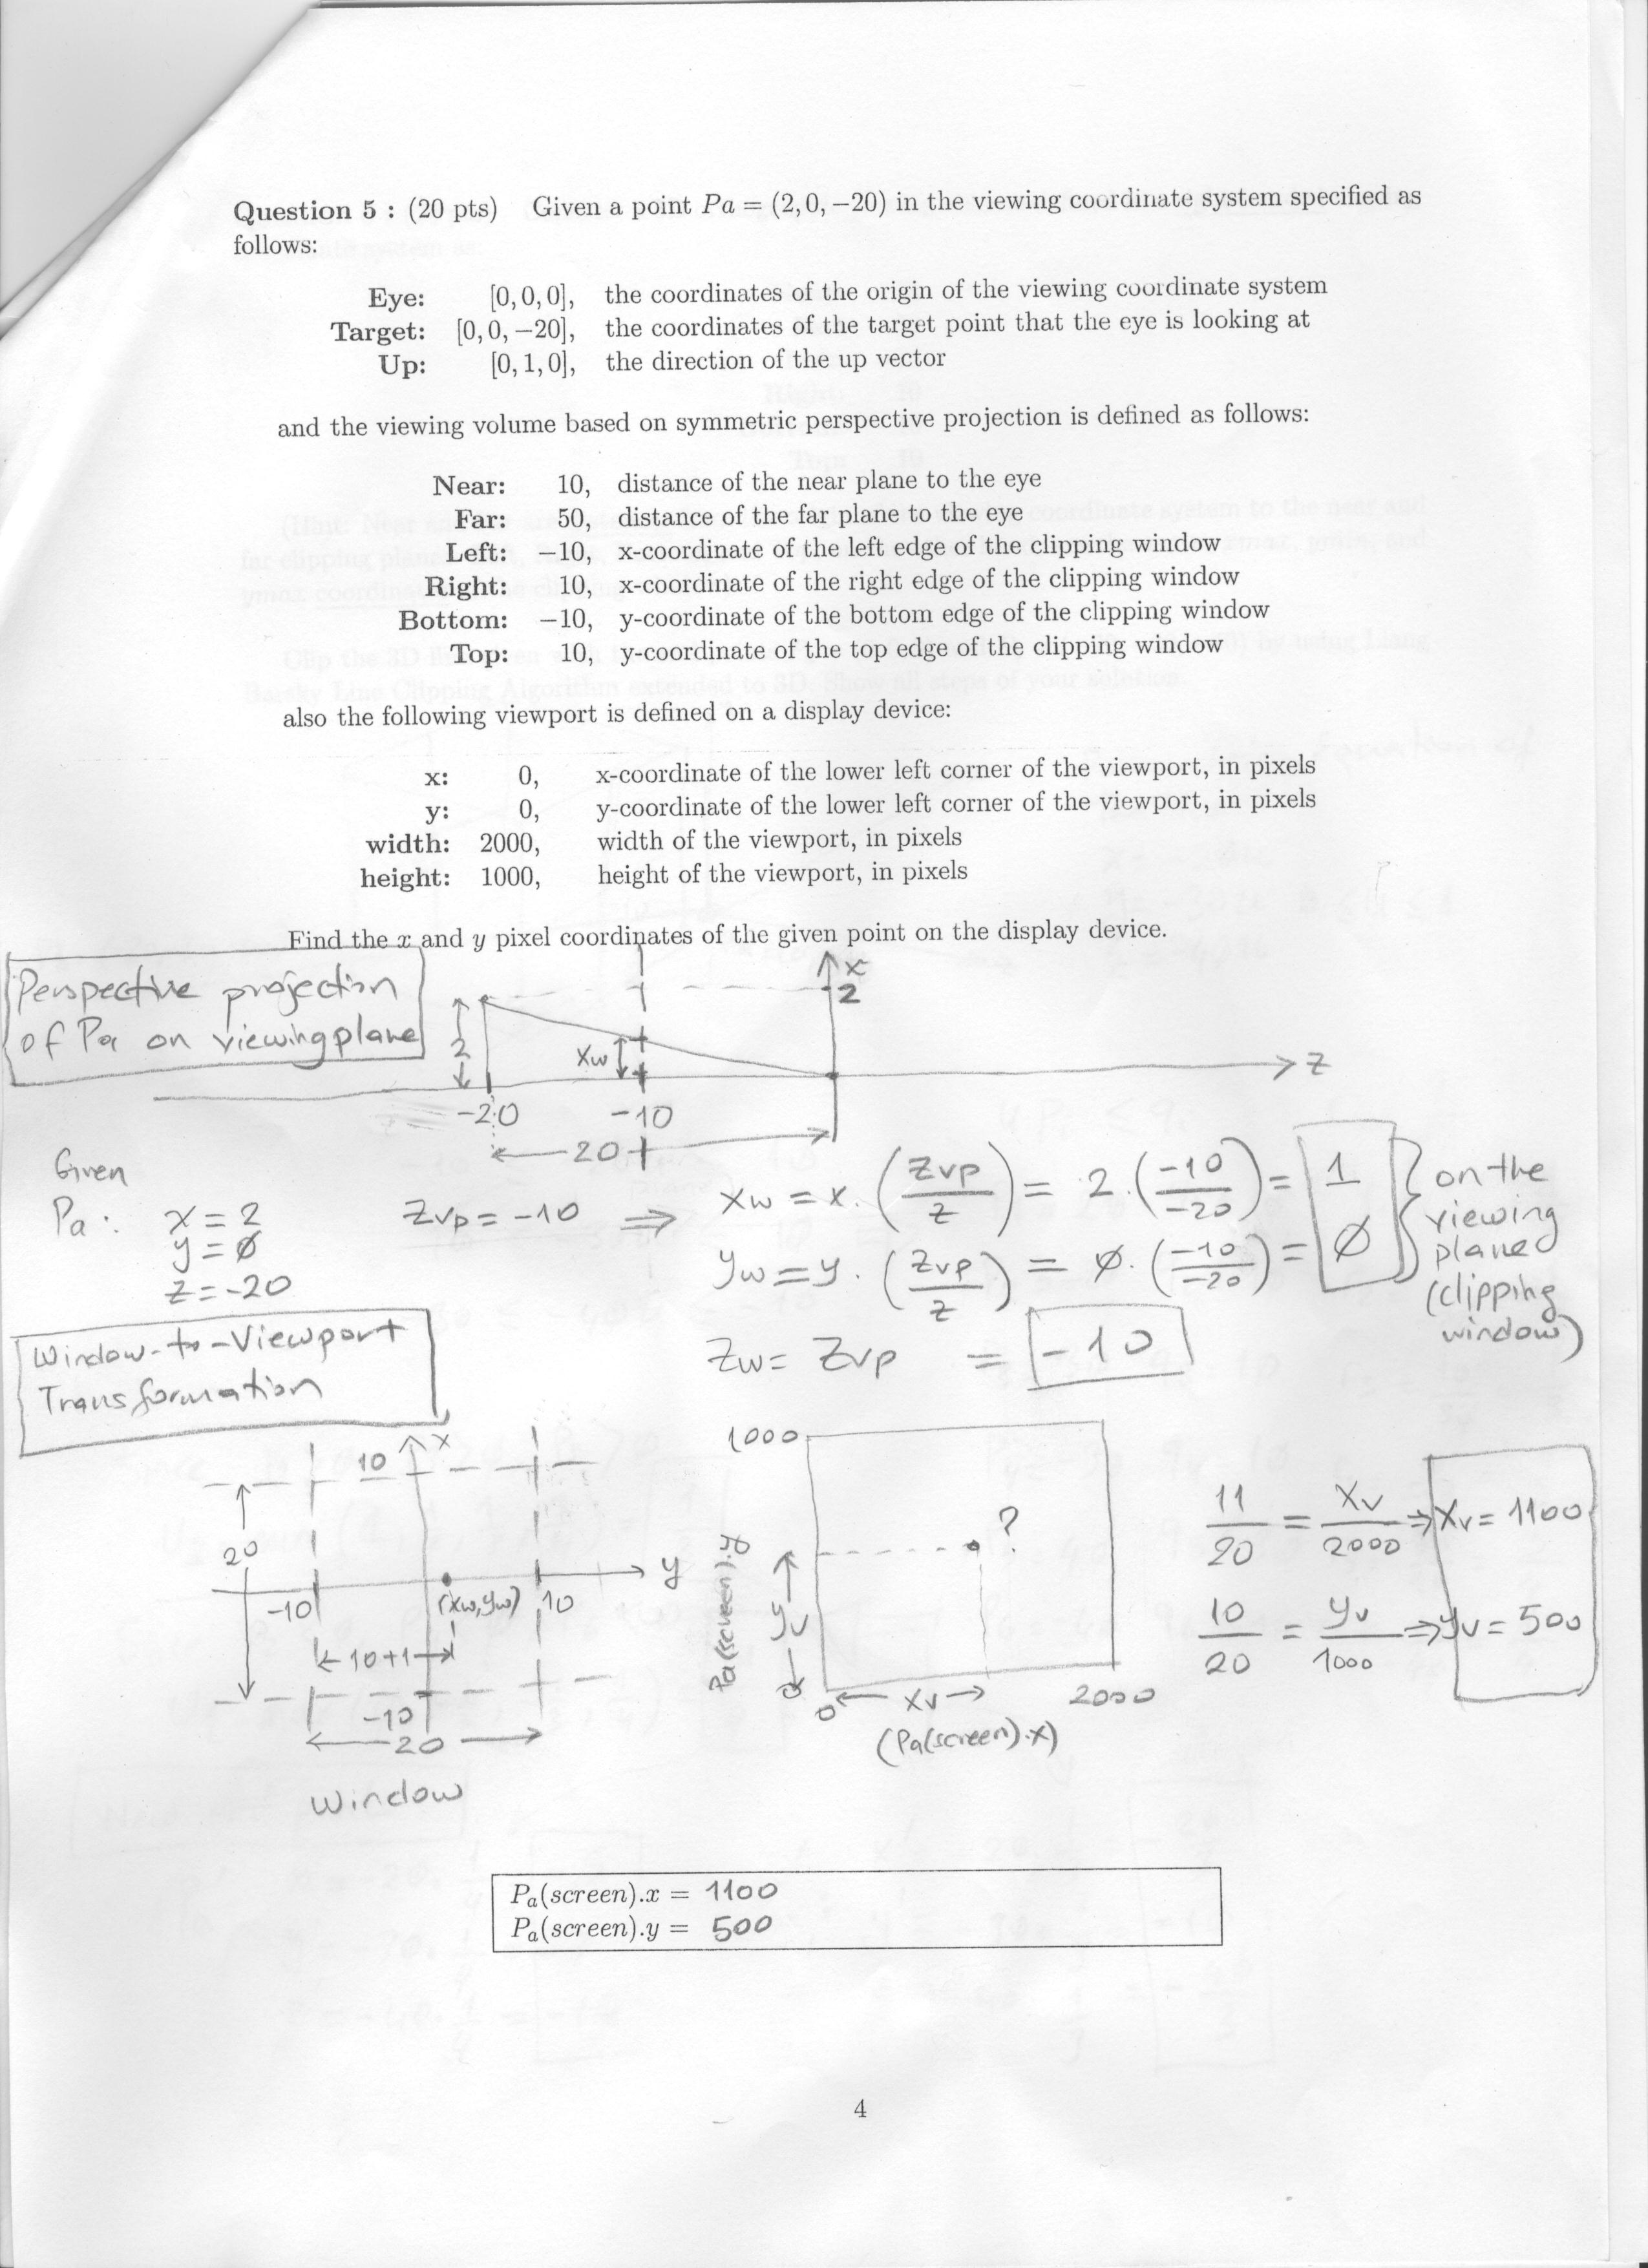 Question 5 : (20 pts) Given a point Pa = (2, 0, −20) in the viewing coordinate system specified as
follows:
Eye: [0, 0, 0], the coordinates of the origin of the viewing coordinate system
Target: [0, 0, −20], the coordinates of the target point that the eye is looking at
Up: [0, 1, 0], the direction of the up vector
and the viewing volume based on symmetric perspective projection is defined as follows:
Near: 10, distance of the near plane to the eye
Far: 50, distance of the far plane to the eye
Left: −10, x-coordinate of the left edge of the clipping window
Right: 10, x-coordinate of the right edge of the clipping window
Bottom: −10, y-coordinate of the bottom edge of the clipping window
Top: 10, y-coordinate of the top edge of the clipping window
also the following viewport is defined on a display device:
x: 0, x-coordinate of the lower left corner of the viewport, in pixels
y: 0, y-coordinate of the lower left corner of the viewport, in pixels
width: 2000, width of the viewport, in pixels
height: 1000, height of the viewport, in pixels
Find the x and y pixel coordinates of the given point on the display device.
Perspective projection
of Pa on viewing plane
x
2
2
xw
z
-20
-10
20
Given
Pa: x = 2
y = ∅
z = -20
Zvp = -10 ⇒
xw = x . (Zvp / z) = 2 . (-10 / -20) = 1
yw = y . (Zvp / z) = ∅ . (-10 / -20) = ∅
Zw = Zvp = -10
on the
viewing
plane
(clipping
window)
Window-to-Viewport
Transformation
10
x
20
y
-10
(xw,yw)
10
10+1
-10
20
Window
1000
?
Pa(screen).y
yv
0
0
xv
2000
(Pa(screen).x)
11 / 20 = xv / 2000 ⇒ xv = 1100
10 / 20 = yv / 1000 ⇒ yv = 500
Pa(screen).x = 1100
Pa(screen).y = 500
4